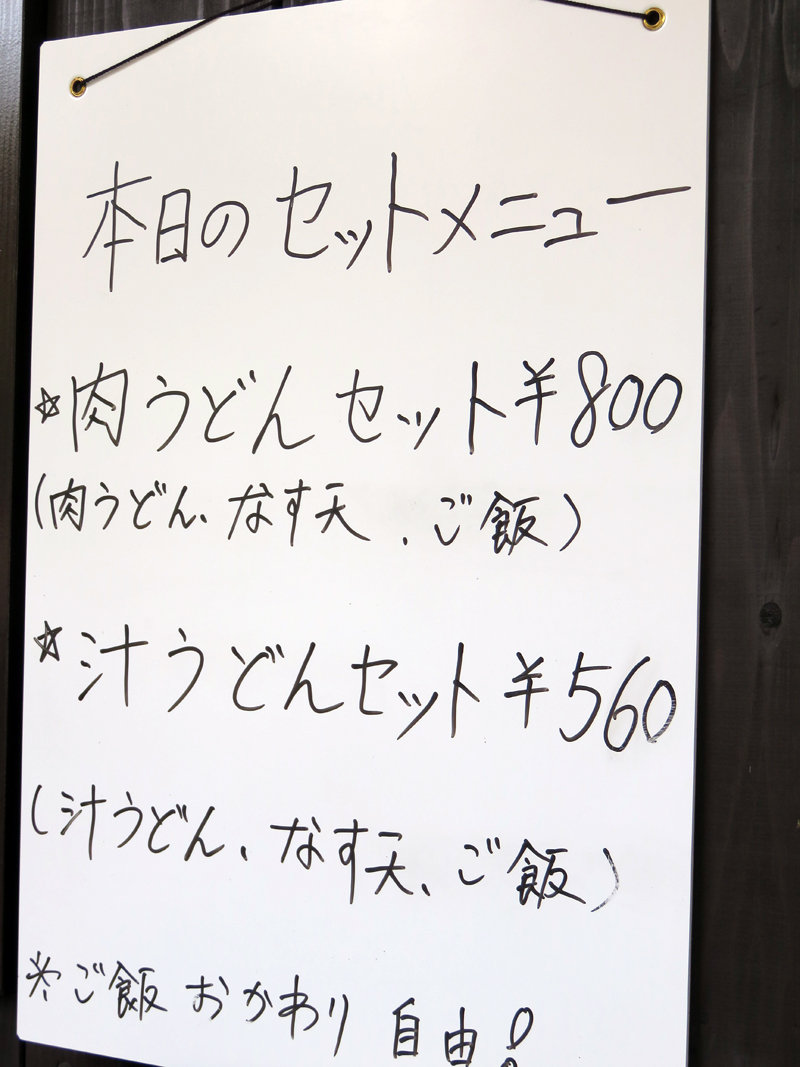 本日のセットメニュー
☆肉うどんセット¥800
(肉うどん、なす天、ご飯)
☆汁うどんセット¥560
(汁うどん、なす天、ご飯)
※ご飯おかわり自由!